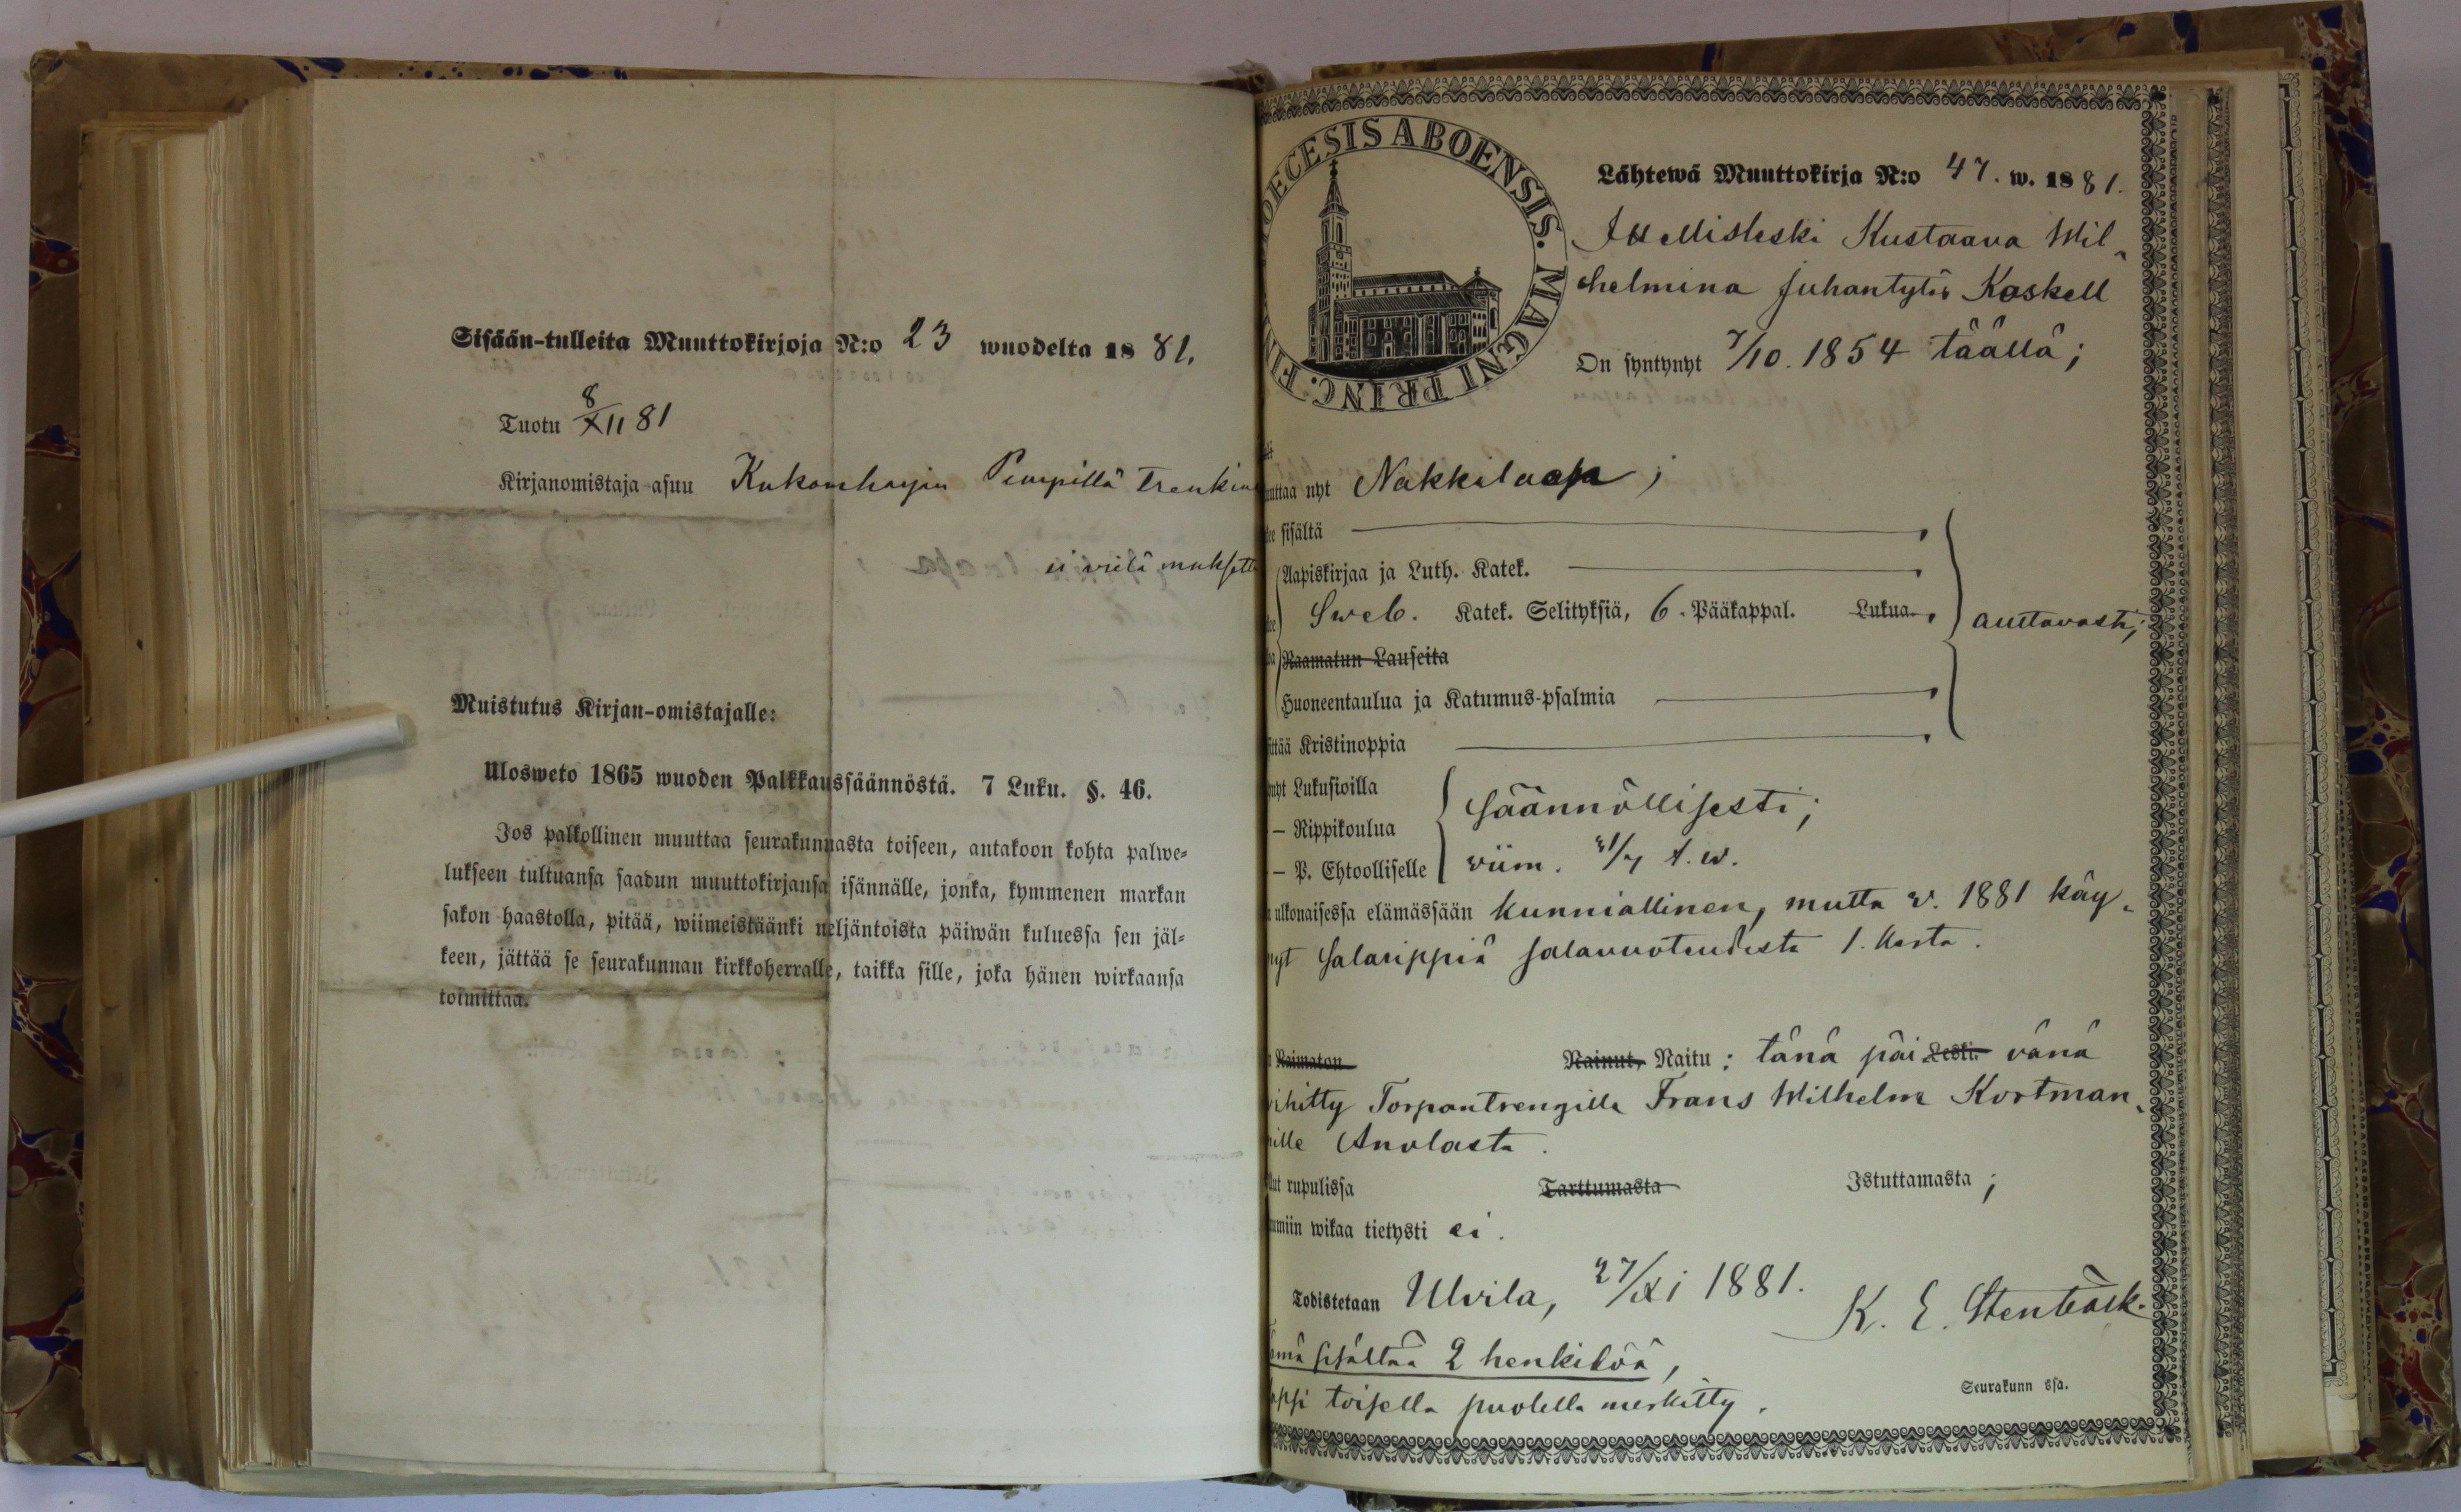 Sisään-tulleita Muuttokirjoja N:o 23 wuodelta 1881.
Tuotu 8/XII 81
Kirjanomistaja asuu Kukonharjan
ei vielä
Muistutus Kirjan-omistajalle:
Ulosweto 1865 wuoden Palkkaussäännöstä. 7 Luku. §. 46.
Jos palkollinen muuttaa seurakunnasta toiseen, antakoon kohta palwe-
lukseen tultuansa saadun muuttokirjansa isännälle, jonka, kymmenen markan
sakon haastolla, pitää, wiimeistäänki neljäntoista päiwän kuluessa sen jäl-
keen, jättää se seurakunnan kirkkoherralle, taikka sille, joka hänen wirkaansa
toimittaa.
OECESIS ABOENSIS. MAGNI PRINC. FIN
Lähtewä Muuttokirja N:o 47. w. 1881.
Kustaava Wil-
helmina Juhantytär Koskell
On syntynyt 7/10. 1854 täällä;
uttaa nyt Nakkilaan;
sisältä
Aapiskirjaa ja Luth. Katek.
Sweb. Katek. Selityksiä, 6. Pääkappal. Lukua. auttavasti;
Raamatun Lauseita
Huoneentaulua ja Katumus-psalmia
ittää Kristinoppia
nyt Lukusioilla
säännöllisesti;
— Rippikoulua
— P. Ehtoolliselle viim. 31/7 t. w.
ulkonaisessa elämässään kunniallinen, mutta v. 1881 käy-
nyt salarippiä salavuoteudesta 1. kerta.
Naimaton Nainut, Naitu: tänä päi Leski. vänä
vihitty Torpantrengille Frans Wilhelm Kortman-
nille Anolasta.
lut rupulissa Tarttumasta Istuttamasta;
mmiin wikaa tietysti ei.
Todistetaan Ulvila, 27/XI 1881. K. E. Stenbäck.
ämä sisältää 2 henkilöä,
appi toisella puolella merkitty.
Seurakunn ssa.